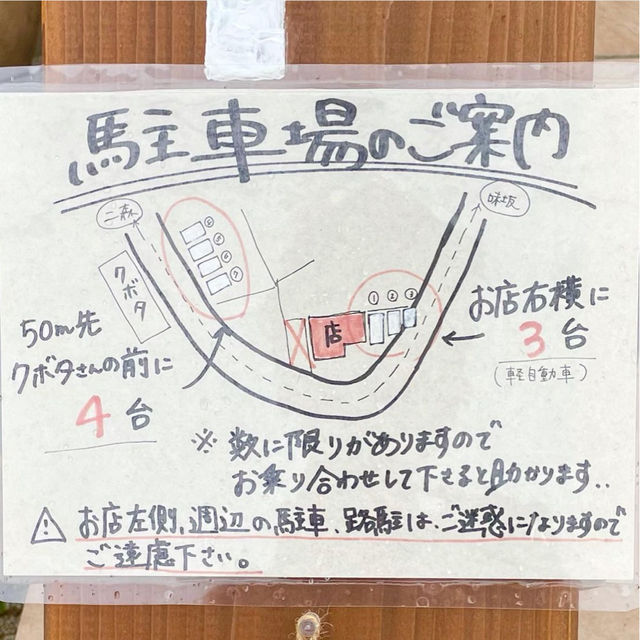 駐車場のご案内
二森
味坂
クボタ
④
⑤
⑥
⑦
① ② ③
店
50m先
クボタさんの前に
4台
お店右横に
3台
(軽自動車)
※ 数に限りがありますので
お乗り合わせして下さると助かります..
⚠ お店左側、周辺の駐車、路駐は、ご迷惑になりますので
ご遠慮下さい。